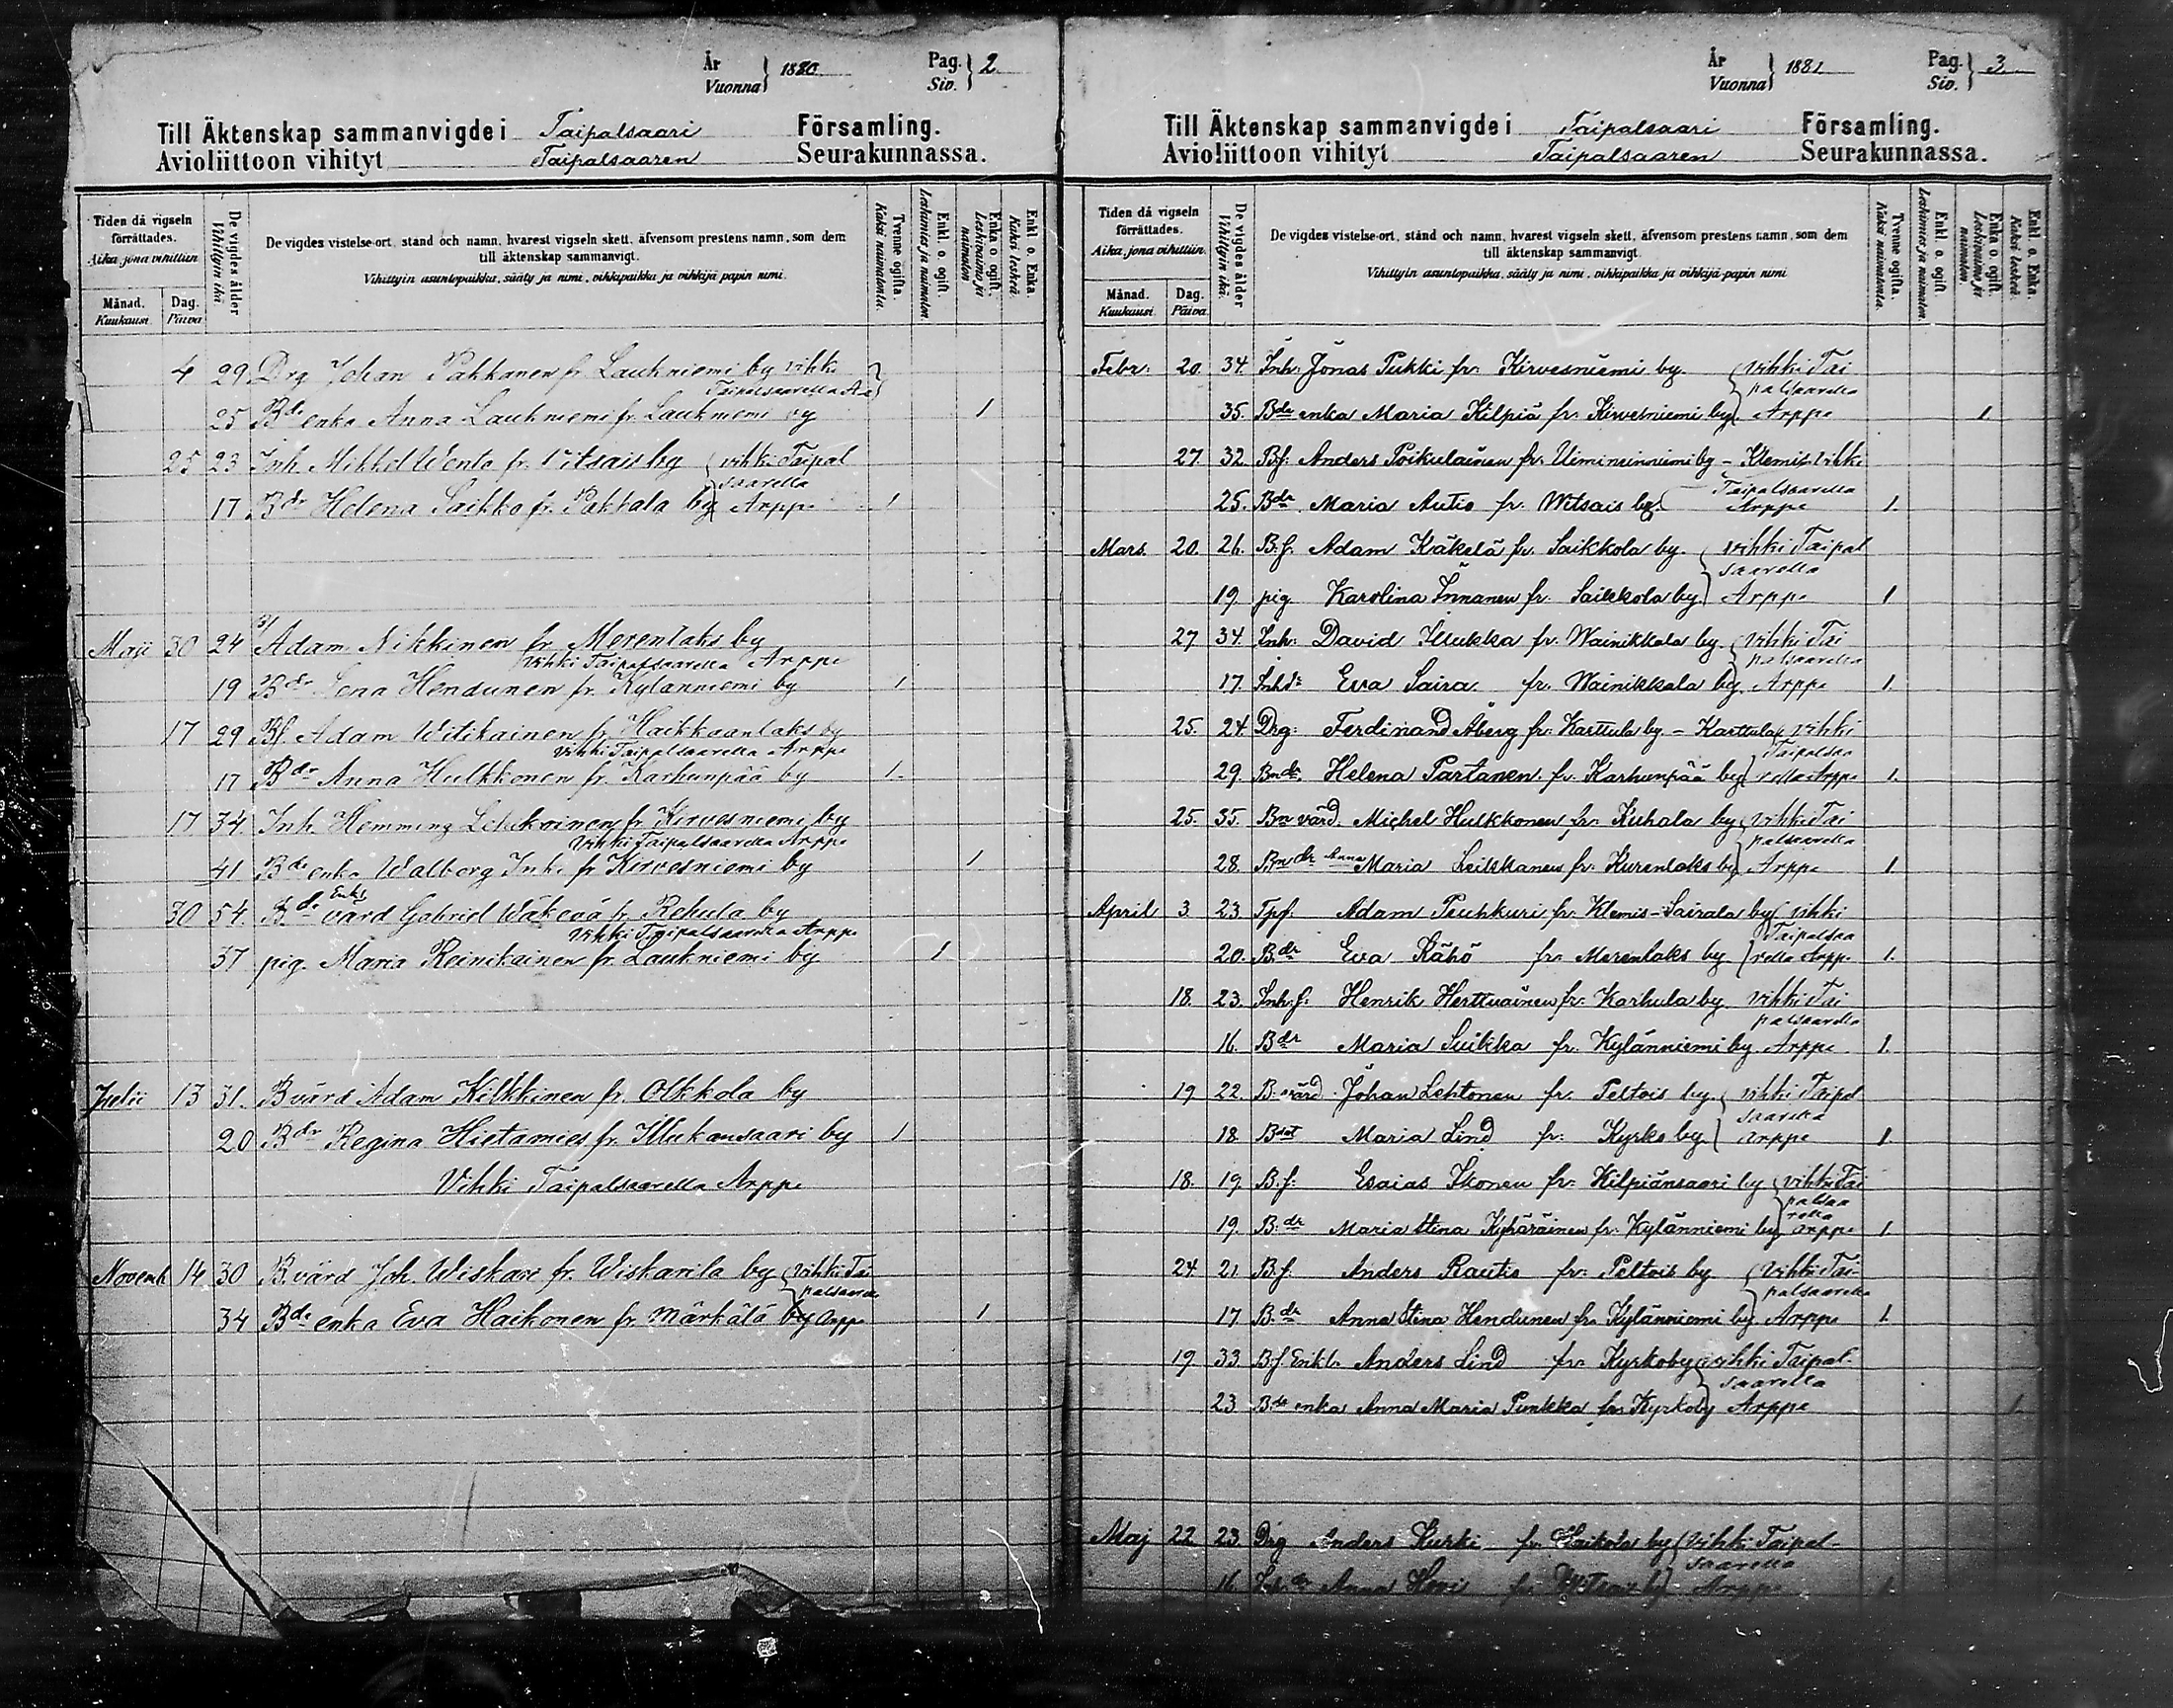 År
Vuonna } 1880.
Pag.
Siv. } 2
Till Äktenskap sammanvigde i Taipalsaari Församling.
Avioliittoon vihityt Taipalsaaren Seurakunnassa.
Tiden då vigseln förrättades.
Aika, jona vihittiin
Månad.
Kuukausi
Dag.
Päivä
De vigdes ålder
Vihittyin ikä.
De vigdes vistelse-ort, stånd och namn, hvarest vigseln skett, äfvensom prestens namn, som dem
till äktenskap sammanvigt.
Vihittyin asuntopaikka, sääty ja nimi, vihkipaikka ja vihkijä papin nimi.
Tvenne ogifta.
Kaksi naimatonta.
Enkl. o. ogift.
Leskimies ja naimaton.
Enka o ogift.
Leskivaimo ja naimaton
Enkl o. Enka.
Kaksi leskeä.
4 29 Drg Johan Pakkanen fr Lauhniemi by vihki
Taipalsaarella
25 Bde enka Anna Lauhniemi fr. Lauhniemi by 1
25 23 Inh. Mikkel Wento fr. Vitsais by vihki Taipal
saarella
17 Bdr Helena Saikko fr. Pakkala by Arppe 1
Maji 30 24 Adam Nikkinen fr. Merenlaks by
vihki Taipalsaarella Arppe
19 Bdr Lena Hendunen fr. Kylänniemi by 1
17 29 Bf. Adam Witikainen fr. Haikkaanlaks by
vihki Taipalsaarella Arppe
17 Bdr Anna Hulkkonen fr. Karhunpää by 1.
17 34. Inh. Hemming Lelukoinen fr. Kirvesniemi by
Vihki Taipalsaarella Arppe
41 Bde enka Walborg Inki fr Kirvesniemi by 1
Enkl
30 54. Bde värd Gabriel Wäkevä fr. Rehula by
Vihki Taipalsaarella Arppe
37 pig. Maria Reinikainen fr. Lauhniemi by 1
Julii 13 31. B värd Adam Kilkkinen fr. Olkkola by
20 Bdr Regina Hietamies fr. Illukansaari by 1
Vihki Taipalsaarella Arppe
Novemb 14 30 B. värd Joh. Wiskari fr. Wiskarila by vihki Tai
palsaarella
34 Bde enka Eva Haikonen fr. Märkälä by Arppe 1
År
Vuonna } 1881
Pag.
Siv. } 3
Till Äktenskap sammanvigde i Taipalsaari Församling.
Avioliittoon vihityt Taipalsaaren Seurakunnassa.
Tiden då vigseln förrättades.
Aika, jona vihittiin.
Månad.
Kuukausi
Dag.
Päivä
De vigdes ålder
Vihittyin ikä.
De vigdes vistelse-ort, stånd och namn, hvarest vigseln skett, äfvensom prestens namn, som dem
till äktenskap sammanvigt.
Vihittyin asuntopaikka, sääty ja nimi, vihkipaikka ja vihkijä-papin nimi
Tvenne ogifta.
Kaksi naimatonta.
Enkl. o. ogift.
Leskimies ja naimaton.
Enka o. ogift.
Leskivaimo ja naimaton
Enkl. o. Enka.
Kaksi leskeä.
Febr: 20. 34. Inh: Jonas Pukki fr. Kirvesniemi by. vihki Tai
palsaarella
35. Bde enka Maria Kilpiä fr. Kirvesniemi by Arppe 1.
27. 32. Bf: Anders Poikulainen fr. Uiminniemi by - Klemis vihki
Taipalsaarella
25. Bdr Maria Autio fr. Witsais by. Arppe 1.
Mars. 20. 26. B. f. Adam Käkelä fr. Saikkola by. vihki Taipal
saarella
19. pig. Karolina Innanen fr. Saikkola by Arppe 1
27 34. Inh: David Ilukka fr. Wainikkala by. vihki Tai
palsaarella
17. Inhdr Eva Saira fr. Wainikkala by. Arppe 1.
25. 24. Drg: Ferdinand Åberg fr: Karttula by - Karttula vihki
Taipalsaa
29. Bmdr. Helena Partanen fr. Karhunpää by rella Arppe 1.
25. 35. Bm värd. Michel Hulkkonen fr. Kuhala by vihki Tai
palsaarella
28. Bmdr Anna Maria Leiskanen fr. Kurenlaks by Arppe 1.
April 3. 23. Tpf. Adam Peuhkuri fr. Klemis-Sairala by vihki
Taipalsaa
20. Bdr Eva Rähö fr. Merenlaks by rella Arppe 1.
18. 23. Inh. f: Henrik Herttuainen fr: Karhula by vihki Tai
palsaarella
16. Bdr Maria Suikka fr. Kylänniemi by. Arppe 1.
19 22. B. värd Johan Lehtonen fr. Peltois by. vihki Taipal
saarella
18. Bdot Maria Lind fr: Kyrko by Arppe 1.
18. 19. B. f: Esaias Ikonen fr: Kilpiänsaari by vihki Tai
palsaa
rella
19. B: dr Maria Stina Kyhäräinen fr. Kylänniemi by Arppe 1
24 21 B. f. Anders Rautio fr: Peltois by vihki Tai-
palsaarella
17. B. dr Anna Stina Hendunen fr. Kylänniemi by. Arppe 1.
19. 33 B. f. Enkl. Anders Lind fr. Kyrkoby vihki Taipal-
saarella
23 Bdr enka Anna Maria Punkka fr. Kyrkoby Arppe 1.
Maj 22. 23. Drg Anders Kurki fr. Saikola by vihki Taipal-
saarella
16. Anna Hovi fr Witsais by Arppe 1.